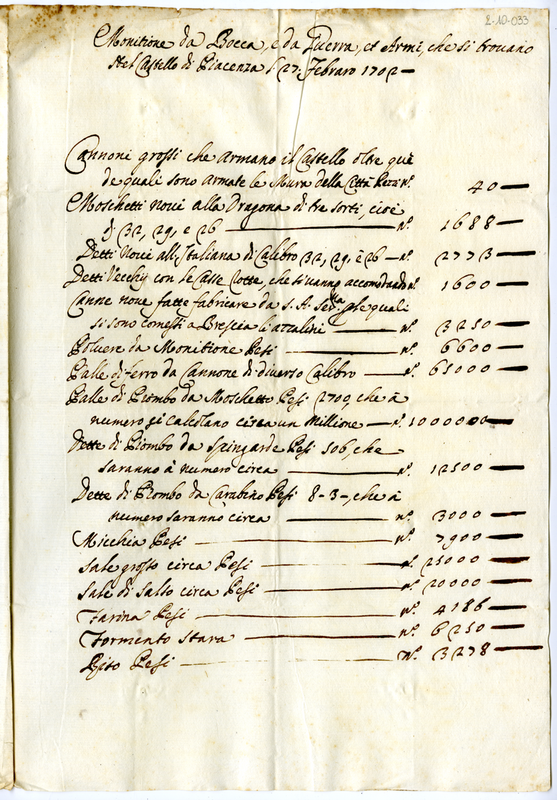 2-10-033
Monitione da Bocca, e da Guerra, et Armi, che si trouano
Nel Castello di Piacenza li 27. Febraro 1702 —
Cannoni grossi che armano il Castello oltre quei
de quali sono armate le Mura della Città Pezzi n.° 40 —
Moschetti noui alla Dragona di tre sorti, cioè
di 32, 29, e 26 — n.° 1688 —
Detti Noui all'Italiana di Calibro 32, 29, e 26 — n.° 2773 —
Detti Vecchij con le Casse rotte, che si uanno accomodando n.° 1600 —
Canne noue fatte fabricare da S. A. Ser.ma per le quali
si sono comessi a Brescia li azzalini — n.° 3250 —
Poluere da Monitione Pesi — n.° 6600 —
Palle di ferro da Cannone di diuerso Calibro — n.° 65000 —
Palle di Piombo da Moschetto Pesi 2700, che à
numero si calcolano circa un Millione — n.° 1000000 —
Dette di Piombo da Spingarde Pesi 506, che
saranno à numero circa — n.° 12500 —
Dette di Piombo da Carabino Pesi 8-3-, che à
numero saranno circa — n.° 3000 —
Micchia Pesi — n.° 7900 —
Sale grosso circa Pesi — n.° 25000 —
Sale di Salso circa Pesi — n.° 20000 —
Farina Pesi — n.° 4186 —
Formento Stara — n.° 6250 —
Riso Pesi — n.° 3278 —